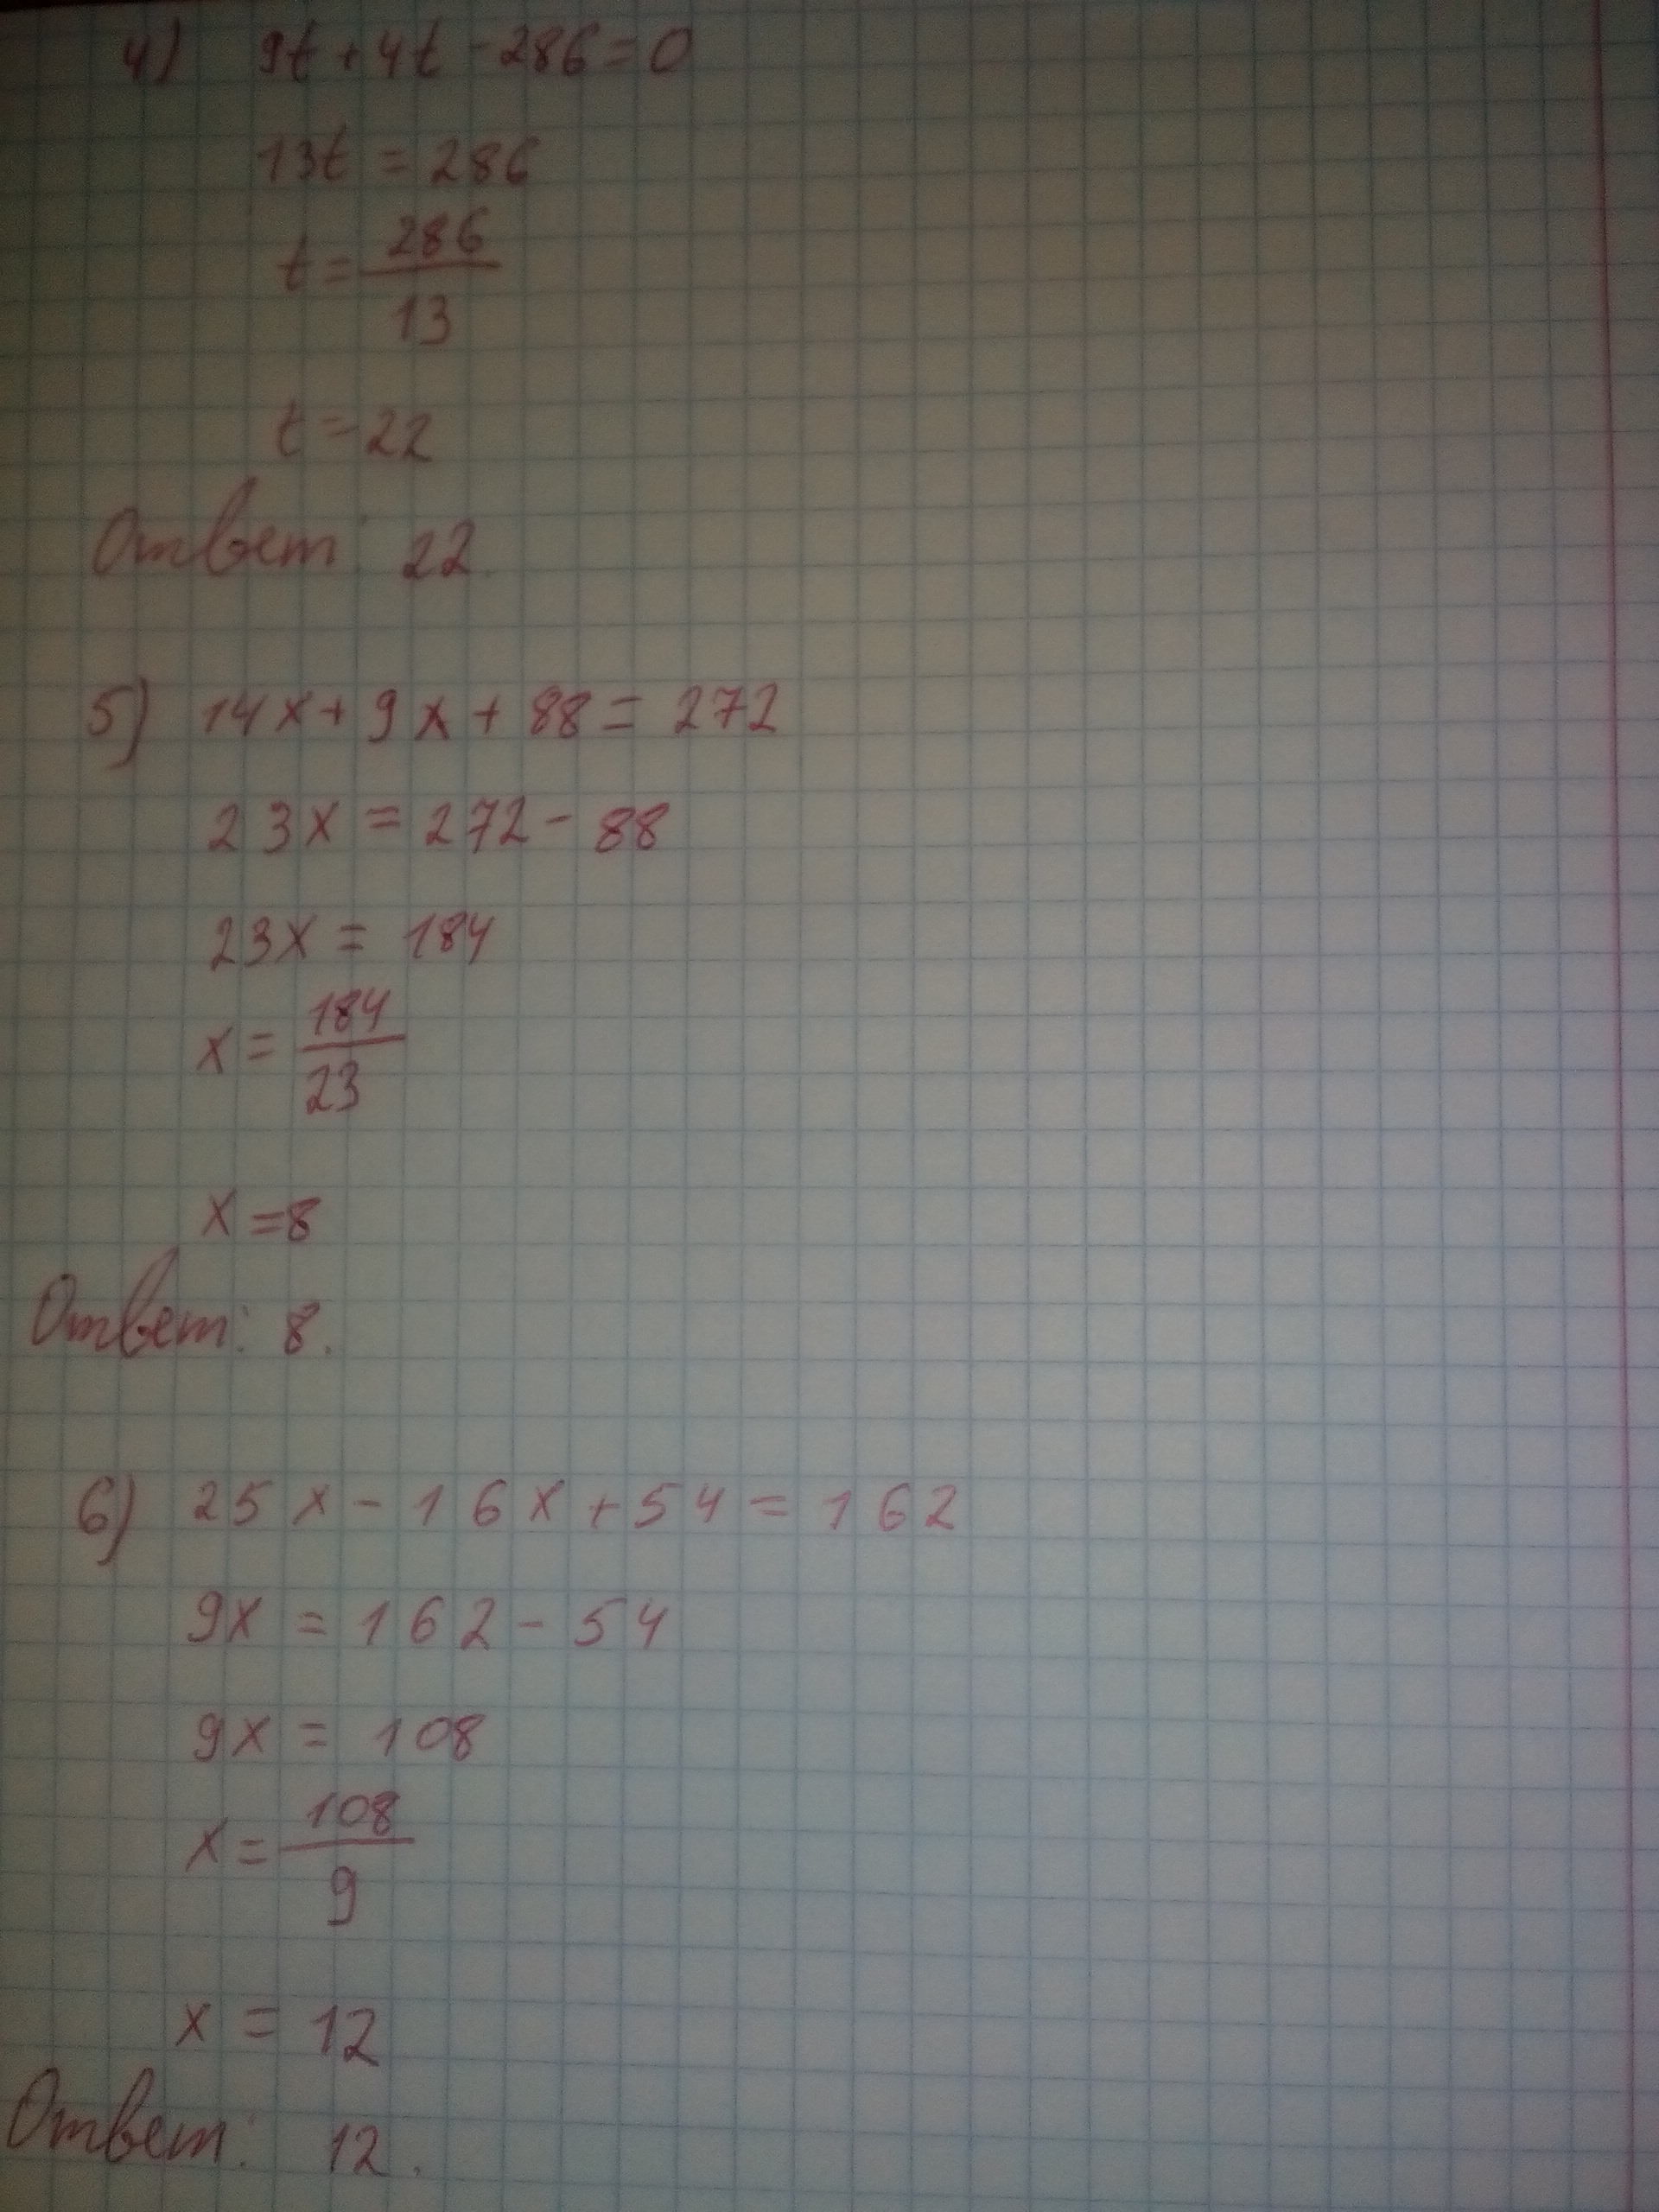 4) 9t + 4t - 286 = 0
13t = 286
t = 286/13
t = 22
Ответ: 22.
5) 14x + 9x + 88 = 272
23x = 272 - 88
23x = 184
x = 184/23
x = 8
Ответ: 8.
6) 25x - 16x + 54 = 162
9x = 162 - 54
9x = 108
x = 108/9
x = 12
Ответ: 12.